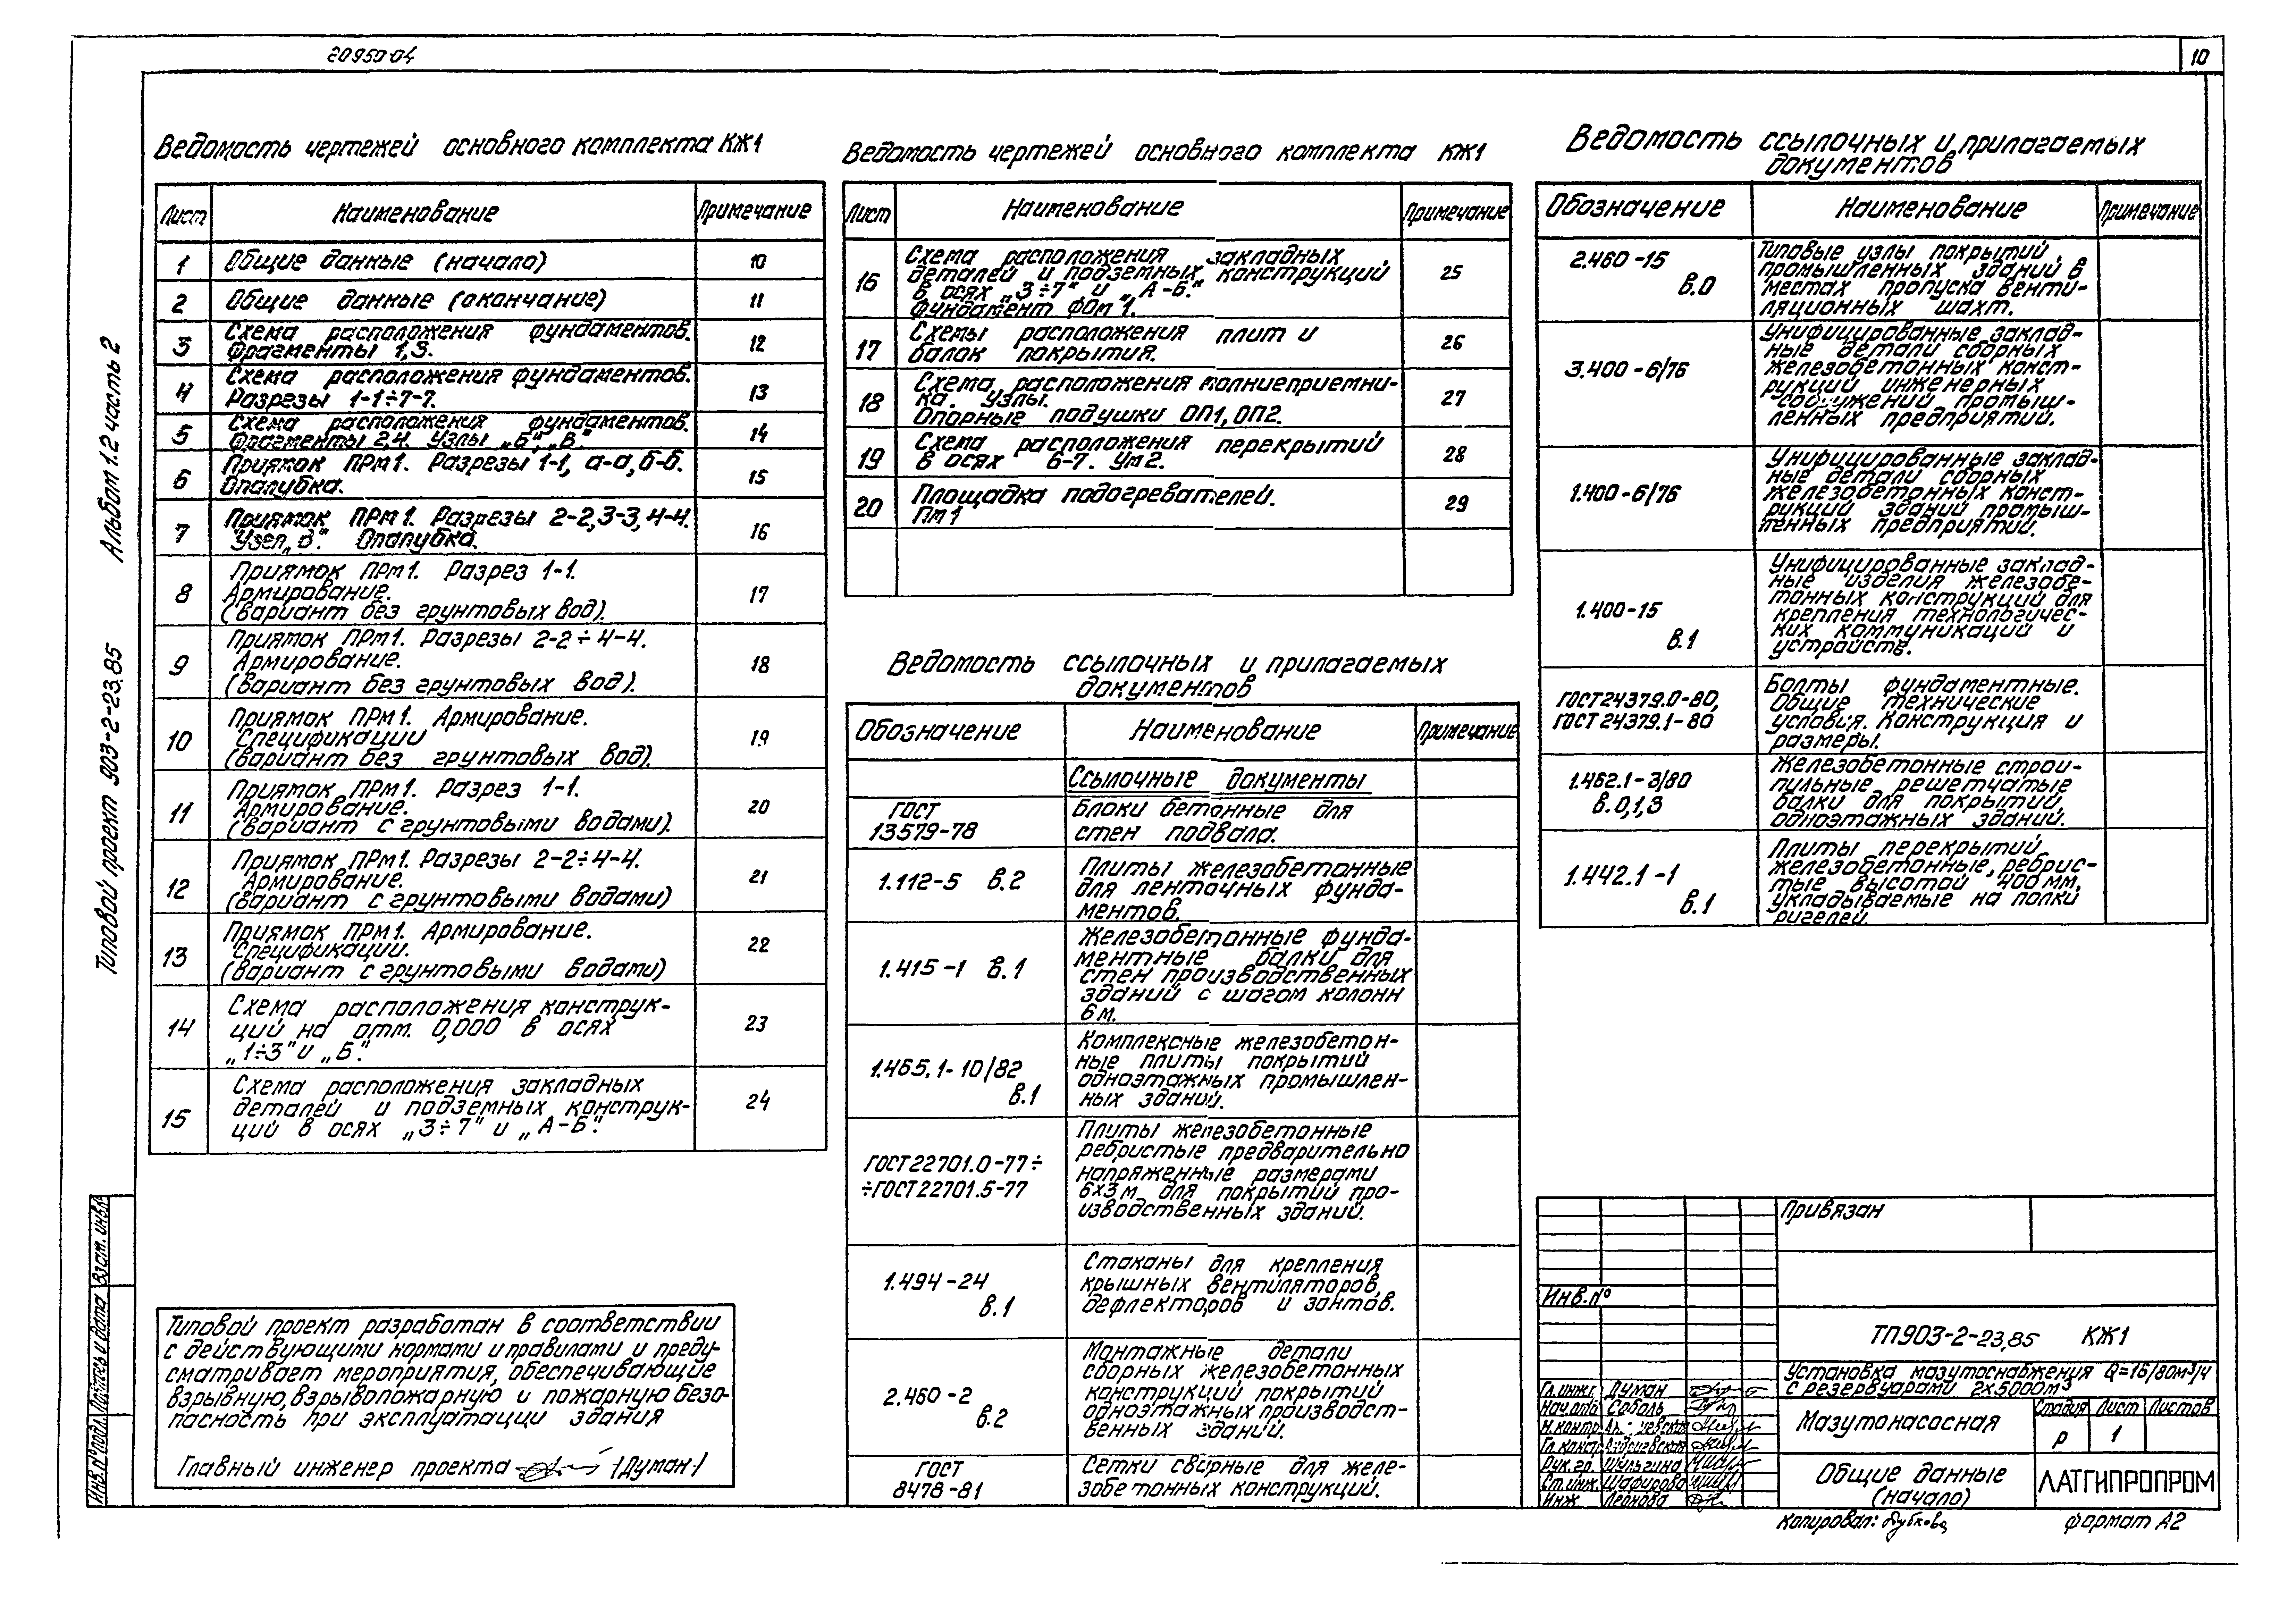 20950-04
10
Альбом 1.2 часть 2
Типовой проект 903-2-23.85
Ведомость чертежей основного комплекта КЖ1
Лист Наименование Примечание
1 Общие данные (начало) 10
2 Общие данные (окончание) 11
3 Схема расположения фундаментов. 12
Фрагменты 1,3.
4 Схема расположения фундаментов. 13
Разрезы 1-1÷7-7.
5 Схема расположения фундаментов. 14
Фрагменты 2,4. Узлы „Б”, „В”.
6 Приямок ПРм1. Разрезы 1-1, а-а, б-б. 15
Опалубка.
7 Приямок ПРм1. Разрезы 2-2, 3-3, 4-4. 16
Узел „д”. Опалубка.
8 Приямок ПРм1. Разрез 1-1. 17
Армирование.
(вариант без грунтовых вод).
9 Приямок ПРм1. Разрезы 2-2÷4-4. 18
Армирование.
(вариант без грунтовых вод).
10 Приямок ПРм1. Армирование. 19
Спецификации
(вариант без грунтовых вод).
11 Приямок ПРм1. Разрез 1-1. 20
Армирование.
(вариант с грунтовыми водами).
12 Приямок ПРм1. Разрезы 2-2÷4-4. 21
Армирование.
(вариант с грунтовыми водами)
13 Приямок ПРм1. Армирование. 22
Спецификации.
(вариант с грунтовыми водами)
14 Схема расположения конструк- 23
ций на отм. 0,000 в осях
„1÷3” и „Б”.
15 Схема расположения закладных 24
деталей и подземных конструк-
ций в осях „3÷7” и „А-Б”.
Типовой проект разработан в соответствии
с действующими нормами и правилами и преду-
сматривает мероприятия, обеспечивающие
взрывную, взрывопожарную и пожарную безо-
пасность при эксплуатации здания
Главный инженер проекта /Думан/
Ведомость чертежей основного комплекта КЖ1
Лист Наименование Примечание
16 Схема расположения закладных 25
деталей и подземных конструкций
в осях „3÷7” и „А-Б.”
Фундамент ФОм1.
17 Схемы расположения плит и 26
балок покрытия.
18 Схема расположения молниеприемни- 27
ка. Узлы.
Опорные подушки ОП1, ОП2.
19 Схема расположения перекрытий 28
в осях 6-7. Ум2.
20 Площадка подогревателей. 29
Пм1
Ведомость ссылочных и прилагаемых
документов
Обозначение Наименование Примечание
Ссылочные документы
ГОСТ Блоки бетонные для
13579-78 стен подвала.
1.112-5 в.2 Плиты железобетонные
для ленточных фунда-
ментов.
1.415-1 в.1 Железобетонные фунда-
ментные балки для
стен производственных
зданий с шагом колонн
6м.
1.465.1-10/82 Комплексные железобетон-
в.1 ные плиты покрытий
одноэтажных промышлен-
ных зданий.
ГОСТ 22701.0-77÷ Плиты железобетонные
÷ГОСТ 22701.5-77 ребристые предварительно
напряженные размерами
6×3м для покрытий про-
изводственных зданий.
1.494-24 Стаканы для крепления
в.1 крышных вентиляторов,
дефлекторов и зонтов.
2.460-2 Монтажные детали
в.2 сборных железобетонных
конструкций покрытий
одноэтажных производст-
венных зданий.
ГОСТ Сетки сварные для желе-
8478-81 зобетонных конструкций.
Ведомость ссылочных и прилагаемых
документов
Обозначение Наименование Примечание
2.460-15 Типовые узлы покрытий
в.0 промышленных зданий в
местах пропуска венти-
ляционных шахт.
3.400-6/76 Унифицированные заклад-
ные детали сборных
железобетонных конст-
рукций инженерных
сооружений промыш-
ленных предприятий.
1.400-6/76 Унифицированные заклад-
ные детали сборных
железобетонных конст-
рукций зданий промыш-
ленных предприятий.
1.400-15 Унифицированные заклад-
в.1 ные изделия железобе-
тонных конструкций для
крепления технологичес-
ких коммуникаций и
устройств.
ГОСТ 24379.0-80, Болты фундаментные.
ГОСТ 24379.1-80 Общие технические
условия. Конструкция и
размеры.
1.462.1-3/80 Железобетонные строи-
в.0,1,3 пильные решетчатые
балки для покрытий
одноэтажных зданий.
1.442.1-1 Плиты перекрытий
в.1 железобетонные, ребрис-
тые высотой 400мм,
укладываемые на полки
ригелей.
Привязан
Инв.№
ТП903-2-23.85 КЖ1
Установка мазутоснабжения Q=16/80м³/ч
с резервуарами 2×5000м³
Гл.инж. Думан
Нач.отд. Соболь
Н.контр.
Гл.конст.
Рук.гр. Шульгина
Ст.инж. Шафирова
Инж. Леонова
Мазутонасосная
Стадия Лист Листов
Р 1
Общие данные
(начало)
ЛАТГИПРОПРОМ
Копировал: Дубкова формат А2
Взам. инв.№
Подпись и дата
Инв.№ подл.